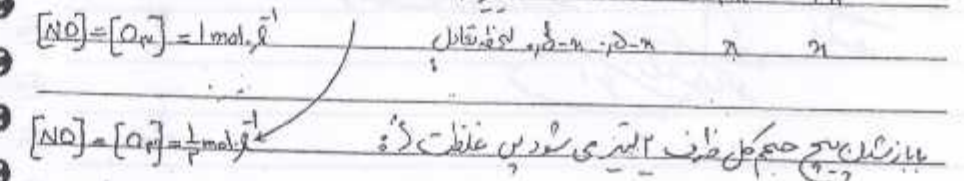 [NO]=[O₃]=1 mol.l⁻¹ لحظه تعادل ۰,۵-x ۰,۵-x x x
[NO]=[O₃]=½ mol.l⁻¹ با باز شدن پیچ حجم کل ظرف ۲ لیتر می شود پس غلظت